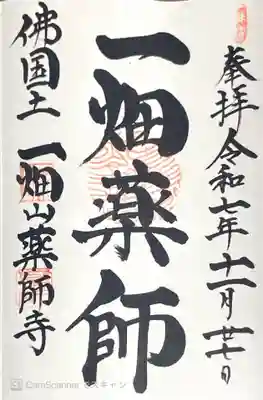 奉拝 令和七年十一月廿七日
一畑薬師
佛国土 一畑山薬師寺
CamScanner でスキャン